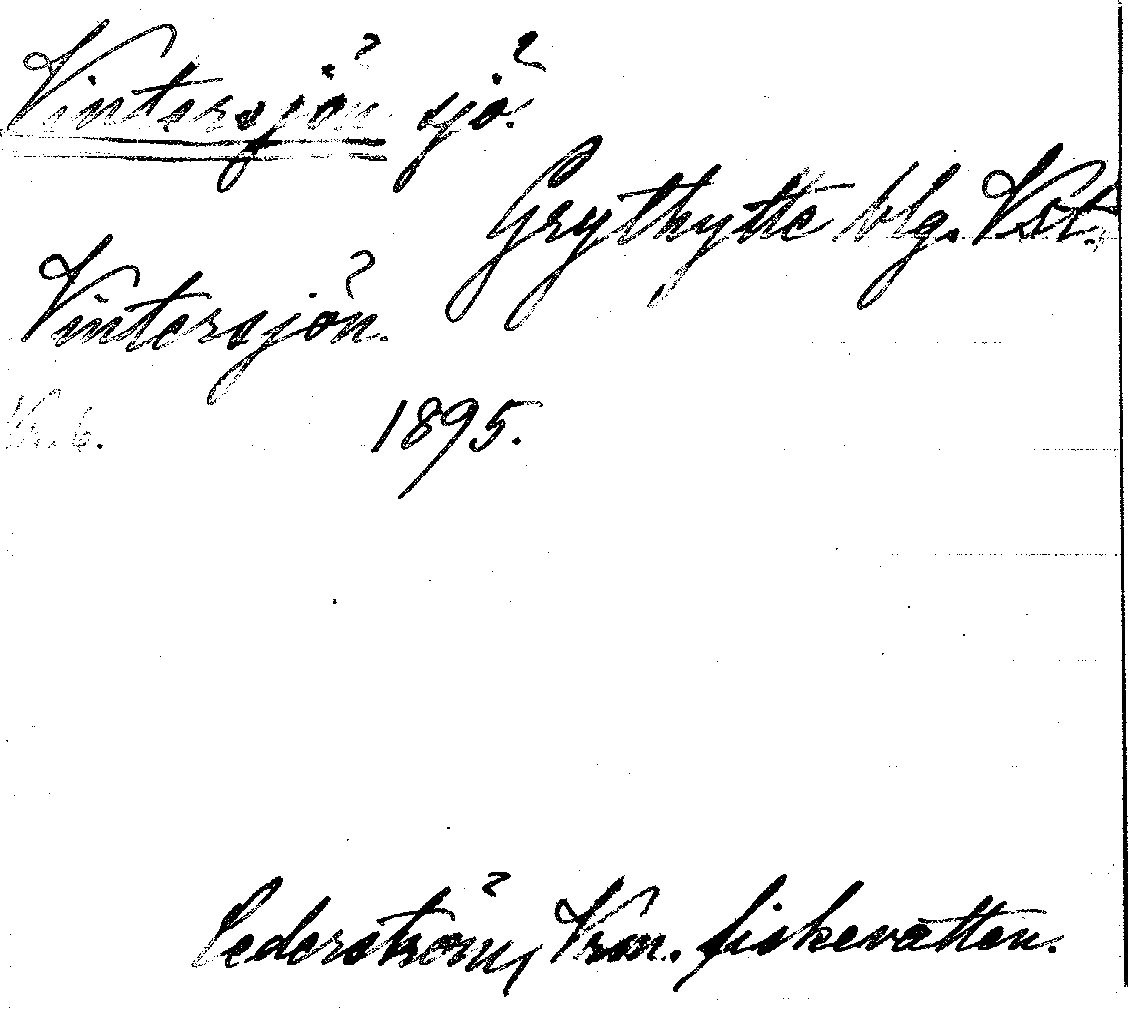 Vintersjön sjö.
Grythytte blg. Vstm.
Vintersjön.
1895.
Cederström, Vrm. fiskevatten.